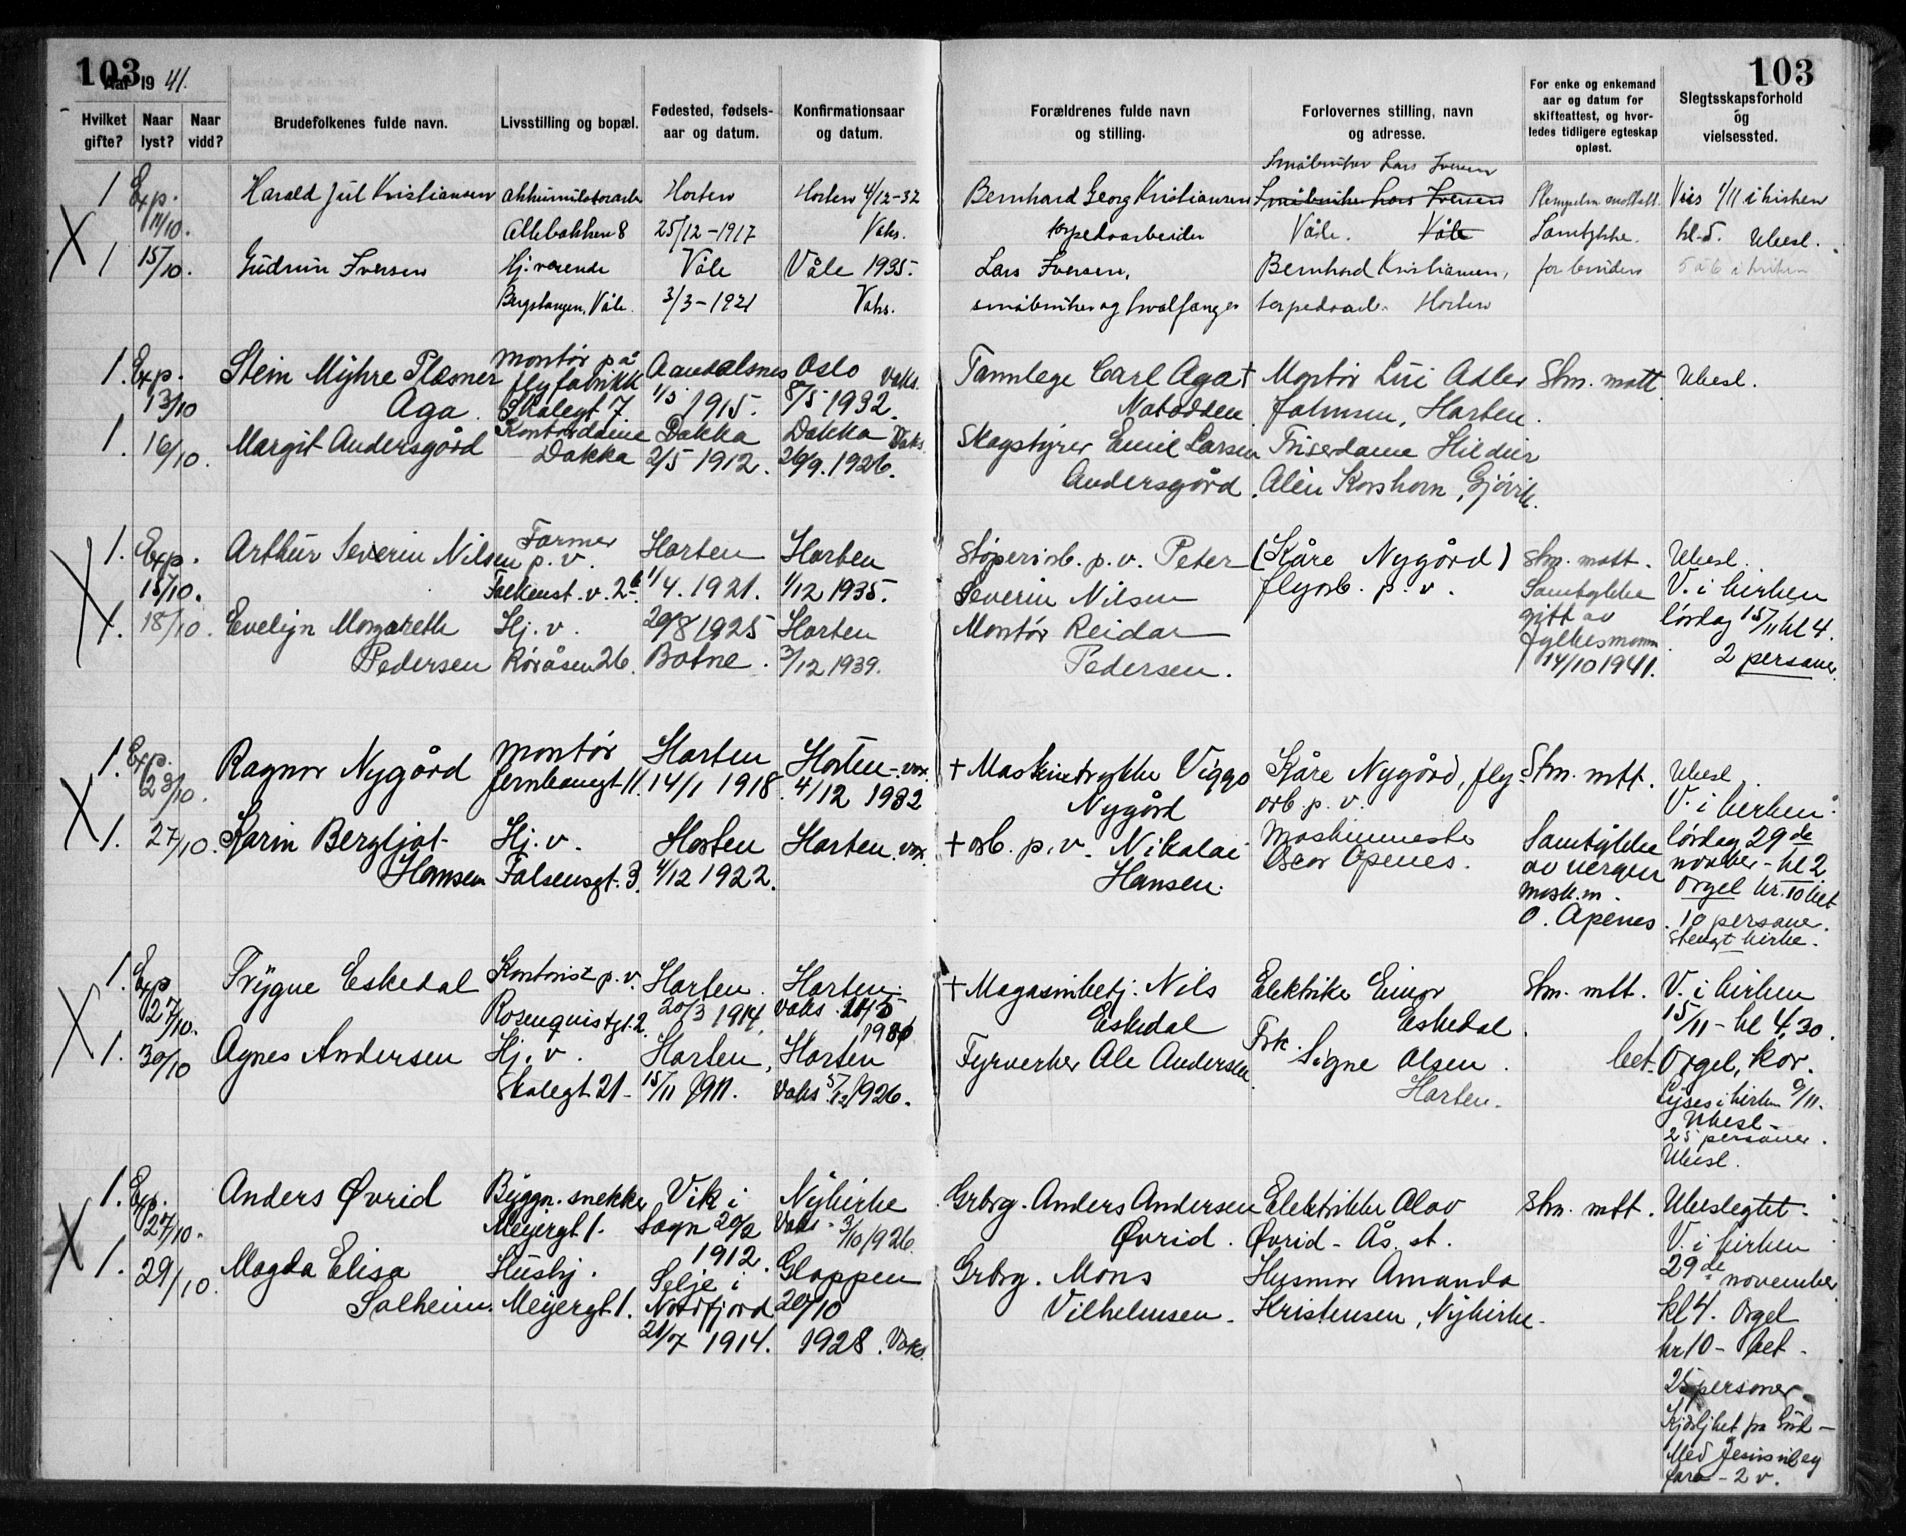 103
Aar 1941.
103
Hvilket gifte?
Naar lyst?
Naar vidd?
Brudefolkenes fulde navn.
Livsstilling og bopæl.
Fødested, fødselsaar og datum.
Konfirmationsaar og datum.
Forældrenes fulde navn og stilling.
Forlovernes stilling, navn og adresse.
For enke og enkemand aar og datum for skifteattest, og hvorledes tidligere egteskap opløst.
Slegtsskapsforhold og vielsessted.
Småbruker Lars Iversen
1 Exp. Harald Juul Kristiansen akkumulatorarb. Horten Horten 4/12-32 Bernhard Georg Kristiansen Småbruker Lars Iversen Stempelm. mottatt. Vies 1/11 i kirken
14/10. Allebakken 8 25/12-1917 Vaks. torpedoarbeider Våle. Våle Samtykke. kl. 5. Ubesl.
1 15/10. Gudrun Iversen Hj. værende Våle Våle 1935. Lars Iversen, Bernhard Kristiansen, for bruden 5 à 6 i kirken
Våle. 3/3-1921 Vaks. småbruker og hvalfanger torpedoarb. Horten
1. Exp. Stein Myhre Plesner montør på Aandalsnes Oslo Vaks. Tannlege Carl Aga + Montør Lui Adler Stm. mott. Ubesl.
13/10 Aga. flyfabrikk 1/5 1915. 8/5 1932. Notodden Johnsen, Horten.
Skolegt 7.
1. 16/10. Margit Andersgård Kontordame Dokka Dokka Vaks. Skogstyrer Emil Larsen Friserdame Hildur
Dokka 2/5 1912. 26/9. 1926. Andersgård. Alin Korshorn, Gjøvik.
1. Exp. Arthur Severin Nilsen Former p. v. Horten Horten Støperiarb. p. v. Peter (Kåre Nygård) Stm. mott. Ubesl.
15/10. Falkenst. v. 26. 1/4. 1921. 1/12 1935. Severin Nilsen flyarb. p. v. Samtykke V. i kirken
1. 18/10. Evelyn Margareth Hj. v. 20/8 1925 Horten Montør Reidar gitt av lørdag 15/11 kl 4.
Pedersen Røråsen 26. Botne. 3/12 1939. Pedersen. fylkesmann 14/10 1941. 2 personer.
1. Exp. Ragnar Nygård montør Horten Horten - vax. + Maskintrykker Viggo Kåre Nygård, fly- Stm. mtt. Ubesl.
23/10. Jernbanegt 11. 14/1 1918. 4/12 1932 Nygård arb. p. v. V. i kirken
1. 27/10. Karin Bergljot Hj. v. Horten Horten. vax. + arb. p. v. Nikolai Maskinmester Samtykke lørdag 29de
Hansen Falsensgt. 3. 4/12 1922. Hansen. Oscar Apenes. av vergen november - kl 2
mask.m. Orgel kr. 10 bet
O. Apenes. 10 personer.
Stengt kirke.
1. Exp Trygve Eskedal Kontorist p. v. Horten. Horten. + Magasinbetj. Nils Elektriker Einar Stm. mtt. V. i kirken
27/10. Rosenquistgt. 2 20/3 1914. Vaks. Eskedal Eskedal. 15/11 - kl 4.30.
1. 30/10 Agnes Andersen Hj. v. Horten, Horten Fyrverker Ole Andersen Frk. Signe Olsen. bet. Orgel, kor.
Skolegt 21 - 15/11 1911. Vaks. 5/12 1926. Horten. Lyses i kirken 9/11.
Ubesl.
25 personer.
Ubesl.
1. Exp. Anders Øvrid Byggn. snekker Vik i Nykirke Grbrg. Anders Andersen Elektriker Olav Stm. mtt. Ubeslegtet.
27/10. Meyergt 1. Sogn 20/2 Vaks - 3/10 1926. Øvrid. Øvrid - Ås. st. V. i kirken
1912.
1. 29/10. Magda Elisa Husbj. Selje i Gloppen Grbrg. Mons Husmor Amanda 29de november
Solheim. Meyergt. 1. Nordfjord 20/10 Vilhelmsen. Kristensen, Nykirke. kl 4. Orgel
21/7 1914. 1928. Vaks. kr 10 - bet.
25 personer.
Kjærlihet fra Gud -
Med Jesus vil eg
fara - 2 v.